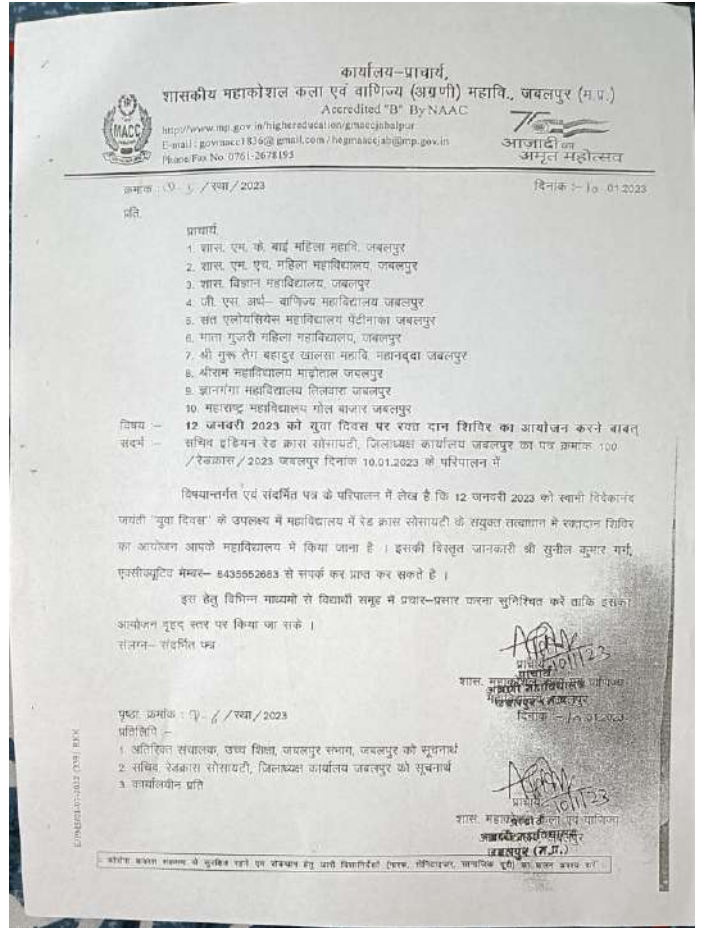 कार्यालय–प्राचार्य,
शासकीय महाकोशल कला एवं वाणिज्य (अग्रणी) महावि., जबलपुर (म.प्र.)
Accredited "B" By NAAC
MACC
http://www.mp.gov in/highereducation/gmaccjabalpur
E-mail : govmacc1836@gmail.com / hegmaaccjab@mp.gov.in
Phone/Fax No. 0761-2678195
आज़ादी का
अमृत महोत्सव
क्रमांक : /स्था/2023
दिनांक :– 10 .01.2023
प्रति,
प्राचार्य,
1. शास. एम. के. बाई महिला महावि. जबलपुर
2. शास. एम. एच. महिला महाविद्यालय, जबलपुर
3. शास. विज्ञान महाविद्यालय, जबलपुर
4. जी. एस. अर्थ– वाणिज्य महाविद्यालय जबलपुर
5. संत एलोयसियेस महाविद्यालय पेंटीनाका जबलपुर
6. माता गुजरी महिला महाविद्यालय, जबलपुर
7. श्री गुरू तेग बहादुर खालसा महावि. महानद्दा जबलपुर
8. श्रीराम महाविद्यालय माढ़ोताल जबलपुर
9. ज्ञानगंगा महाविद्यालय तिलवारा जबलपुर
10. महाराष्ट्र महाविद्यालय गोल बाजार जबलपुर
विषय :– 12 जनवरी 2023 को युवा दिवस पर रक्त दान शिविर का आयोजन करने बाबत्
संदर्भ :– सचिव इंडियन रेड क्रास सोसायटी, जिलाध्यक्ष कार्यालय जबलपुर का पत्र क्रमांक 100
/रेडक्रास/2023 जबलपुर दिनांक 10.01.2023 के परिपालन में
विषयान्तर्गत एवं संदर्भित पत्र के परिपालन में लेख है कि 12 जनवरी 2023 को स्वामी विवेकानंद
जयंती "युवा दिवस" के उपलक्ष्य में महाविद्यालय में रेड क्रास सोसायटी के संयुक्त तत्वाधान में रक्तदान शिविर
का आयोजन आपके महाविद्यालय में किया जाना है । इसकी विस्तृत जानकारी श्री सुनील कुमार गर्ग,
एक्सीक्यूटिव मेम्बर– 6435552683 से संपर्क कर प्राप्त कर सकते है ।
इस हेतु विभिन्न माध्यमों से विद्यार्थी समूह में प्रचार–प्रसार करना सुनिश्चित करें ताकि इसका
आयोजन वृहद् स्तर पर किया जा सके ।
संलग्न– संदर्भित पत्र
10/1/23
प्राचार्य
प्राचार्य
शास. महाकोशल कला एवं वाणिज्य
अग्रणी महाविद्यालय
जबलपुर (म.प्र.)
दिनांक :– 10.01.2023
पृष्ठा. क्रमांक : /स्था/2023
प्रतिलिपि :–
1. अतिरिक्त संचालक, उच्च शिक्षा, जबलपुर संभाग, जबलपुर को सूचनार्थ
2. सचिव, रेडक्रास सोसायटी, जिलाध्यक्ष कार्यालय जबलपुर को सूचनार्थ
3. कार्यालयीन प्रति
10/1/23
प्राचार्य
शास. महाकोशल कला एवं वाणिज्य
अग्रणी महाविद्यालय
जबलपुर (म.प्र.)